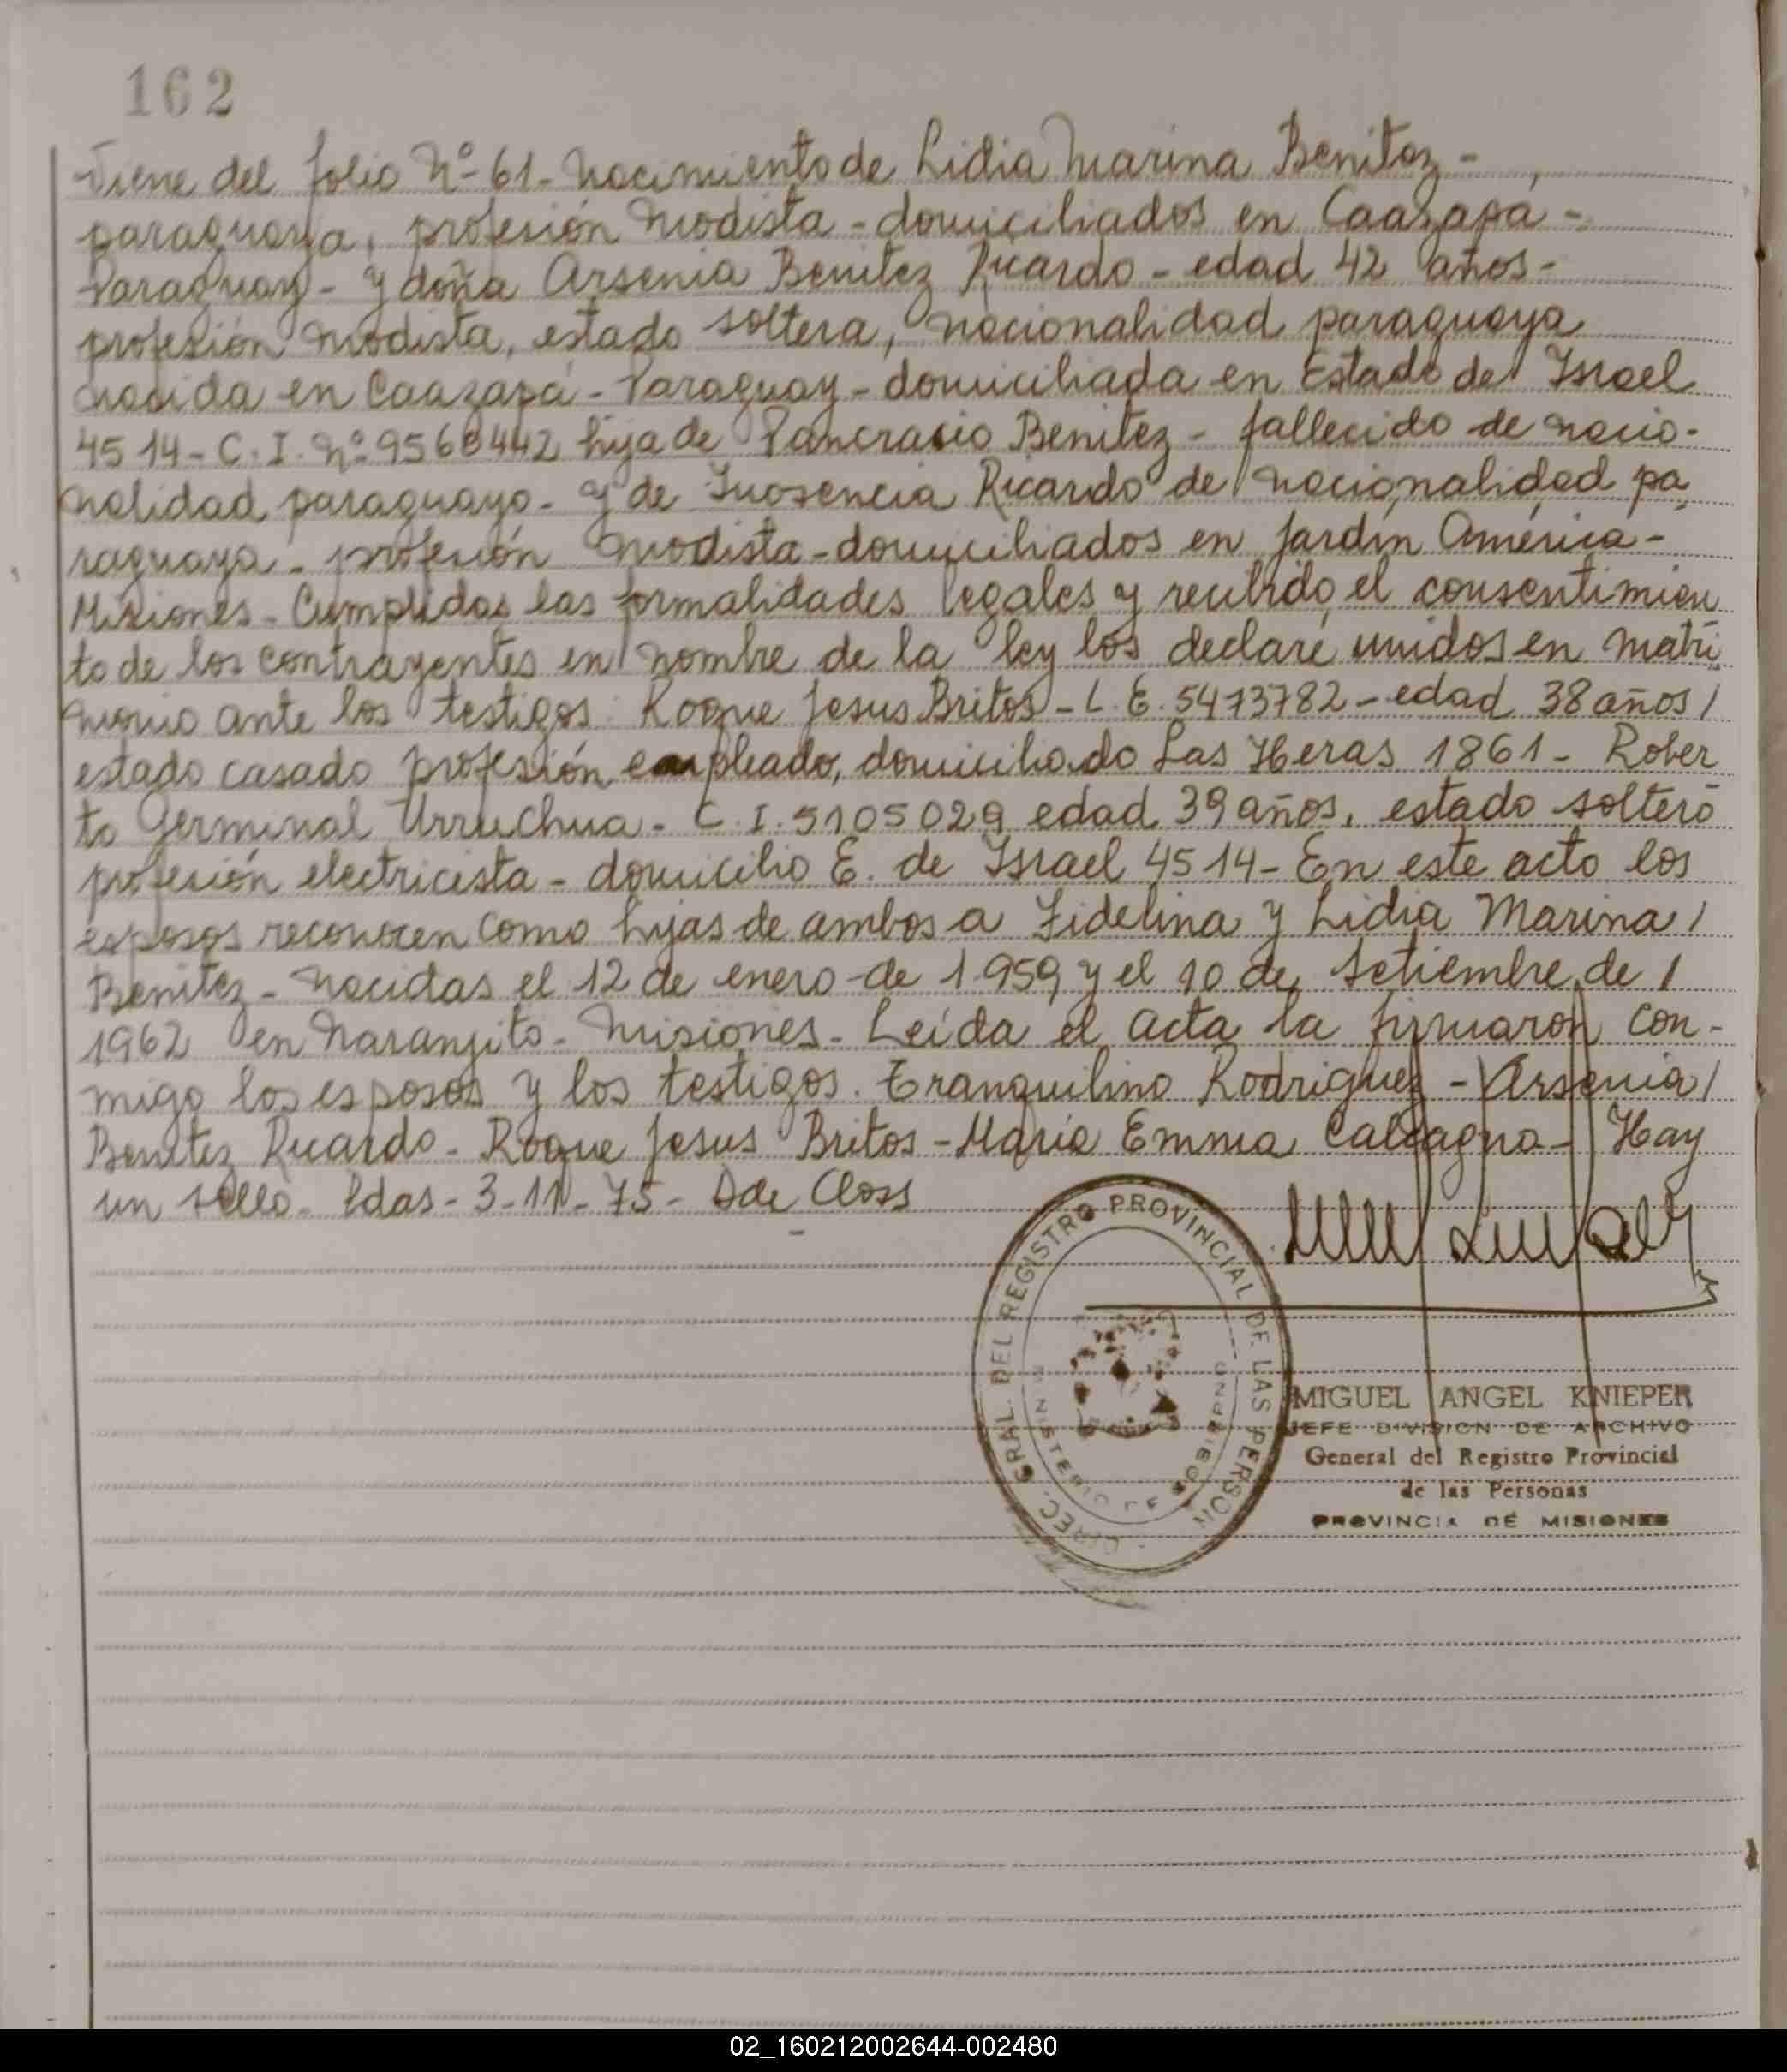 162
Viene del folio Nº 61- Nacimiento de Lidia Marina Benitez -
paraguaya, profesión Modista - domiciliados en Caazapa -
Paraguay - y doña Arsenia Benitez Ricardo - edad 42 años -
profesión modista, estado soltera, nacionalidad paraguaya
nacida en Caazapá - Paraguay - domiciliada en Estado de Israel
4514 - C. I. Nº 9560442 hija de Pancracio Benitez - fallecido de nacio-
nalidad paraguayo - y de Inosencia Ricardo de nacionalidad pa
raguaya - profesión modista - domiciliados en Jardín América -
Misiones - Cumplidas las formalidades legales y recibido el consentimien
to de los contrayentes en nombre de la ley los declaré unidos en matri
monio ante los testigos Roque Jesus Britos - L. E. 5413782 - edad 38 años /
estado casado profesión empleado, domiciliado Las Heras 1861 - Rober
to Germinal Urruchua - C. I. 5105029 edad 39 años, estado soltero
profesión electricista - domicilio E. de Israel 4514 - En este acto los
esposos reconocen como hijas de ambos a Fidelina y Lidia Marina /
Benitez - nacidas el 12 de enero de 1.959 y el 10 de Setiembre de /
1962 en Naranjito - Misiones - Leída el acta la firmaron con-
migo los esposos y los testigos. Tranquilino Rodriguez - Arsenia /
Benitez Ricardo - Roque Jesus Britos - María Emma Calcagno - Hay
un sello - Pdas - 3 - 11 - 75 - Dde Closs
DIREC. GRAL. DEL REGISTRO PROVINCIAL DE LAS PERSON
MINISTERIO DE GOBIERNO
MIGUEL ANGEL KNIEPER
JEFE DIVISION DE ARCHIVO
General del Registro Provincial
de las Personas
PROVINCIA DE MISIONES
02_160212002644-002480